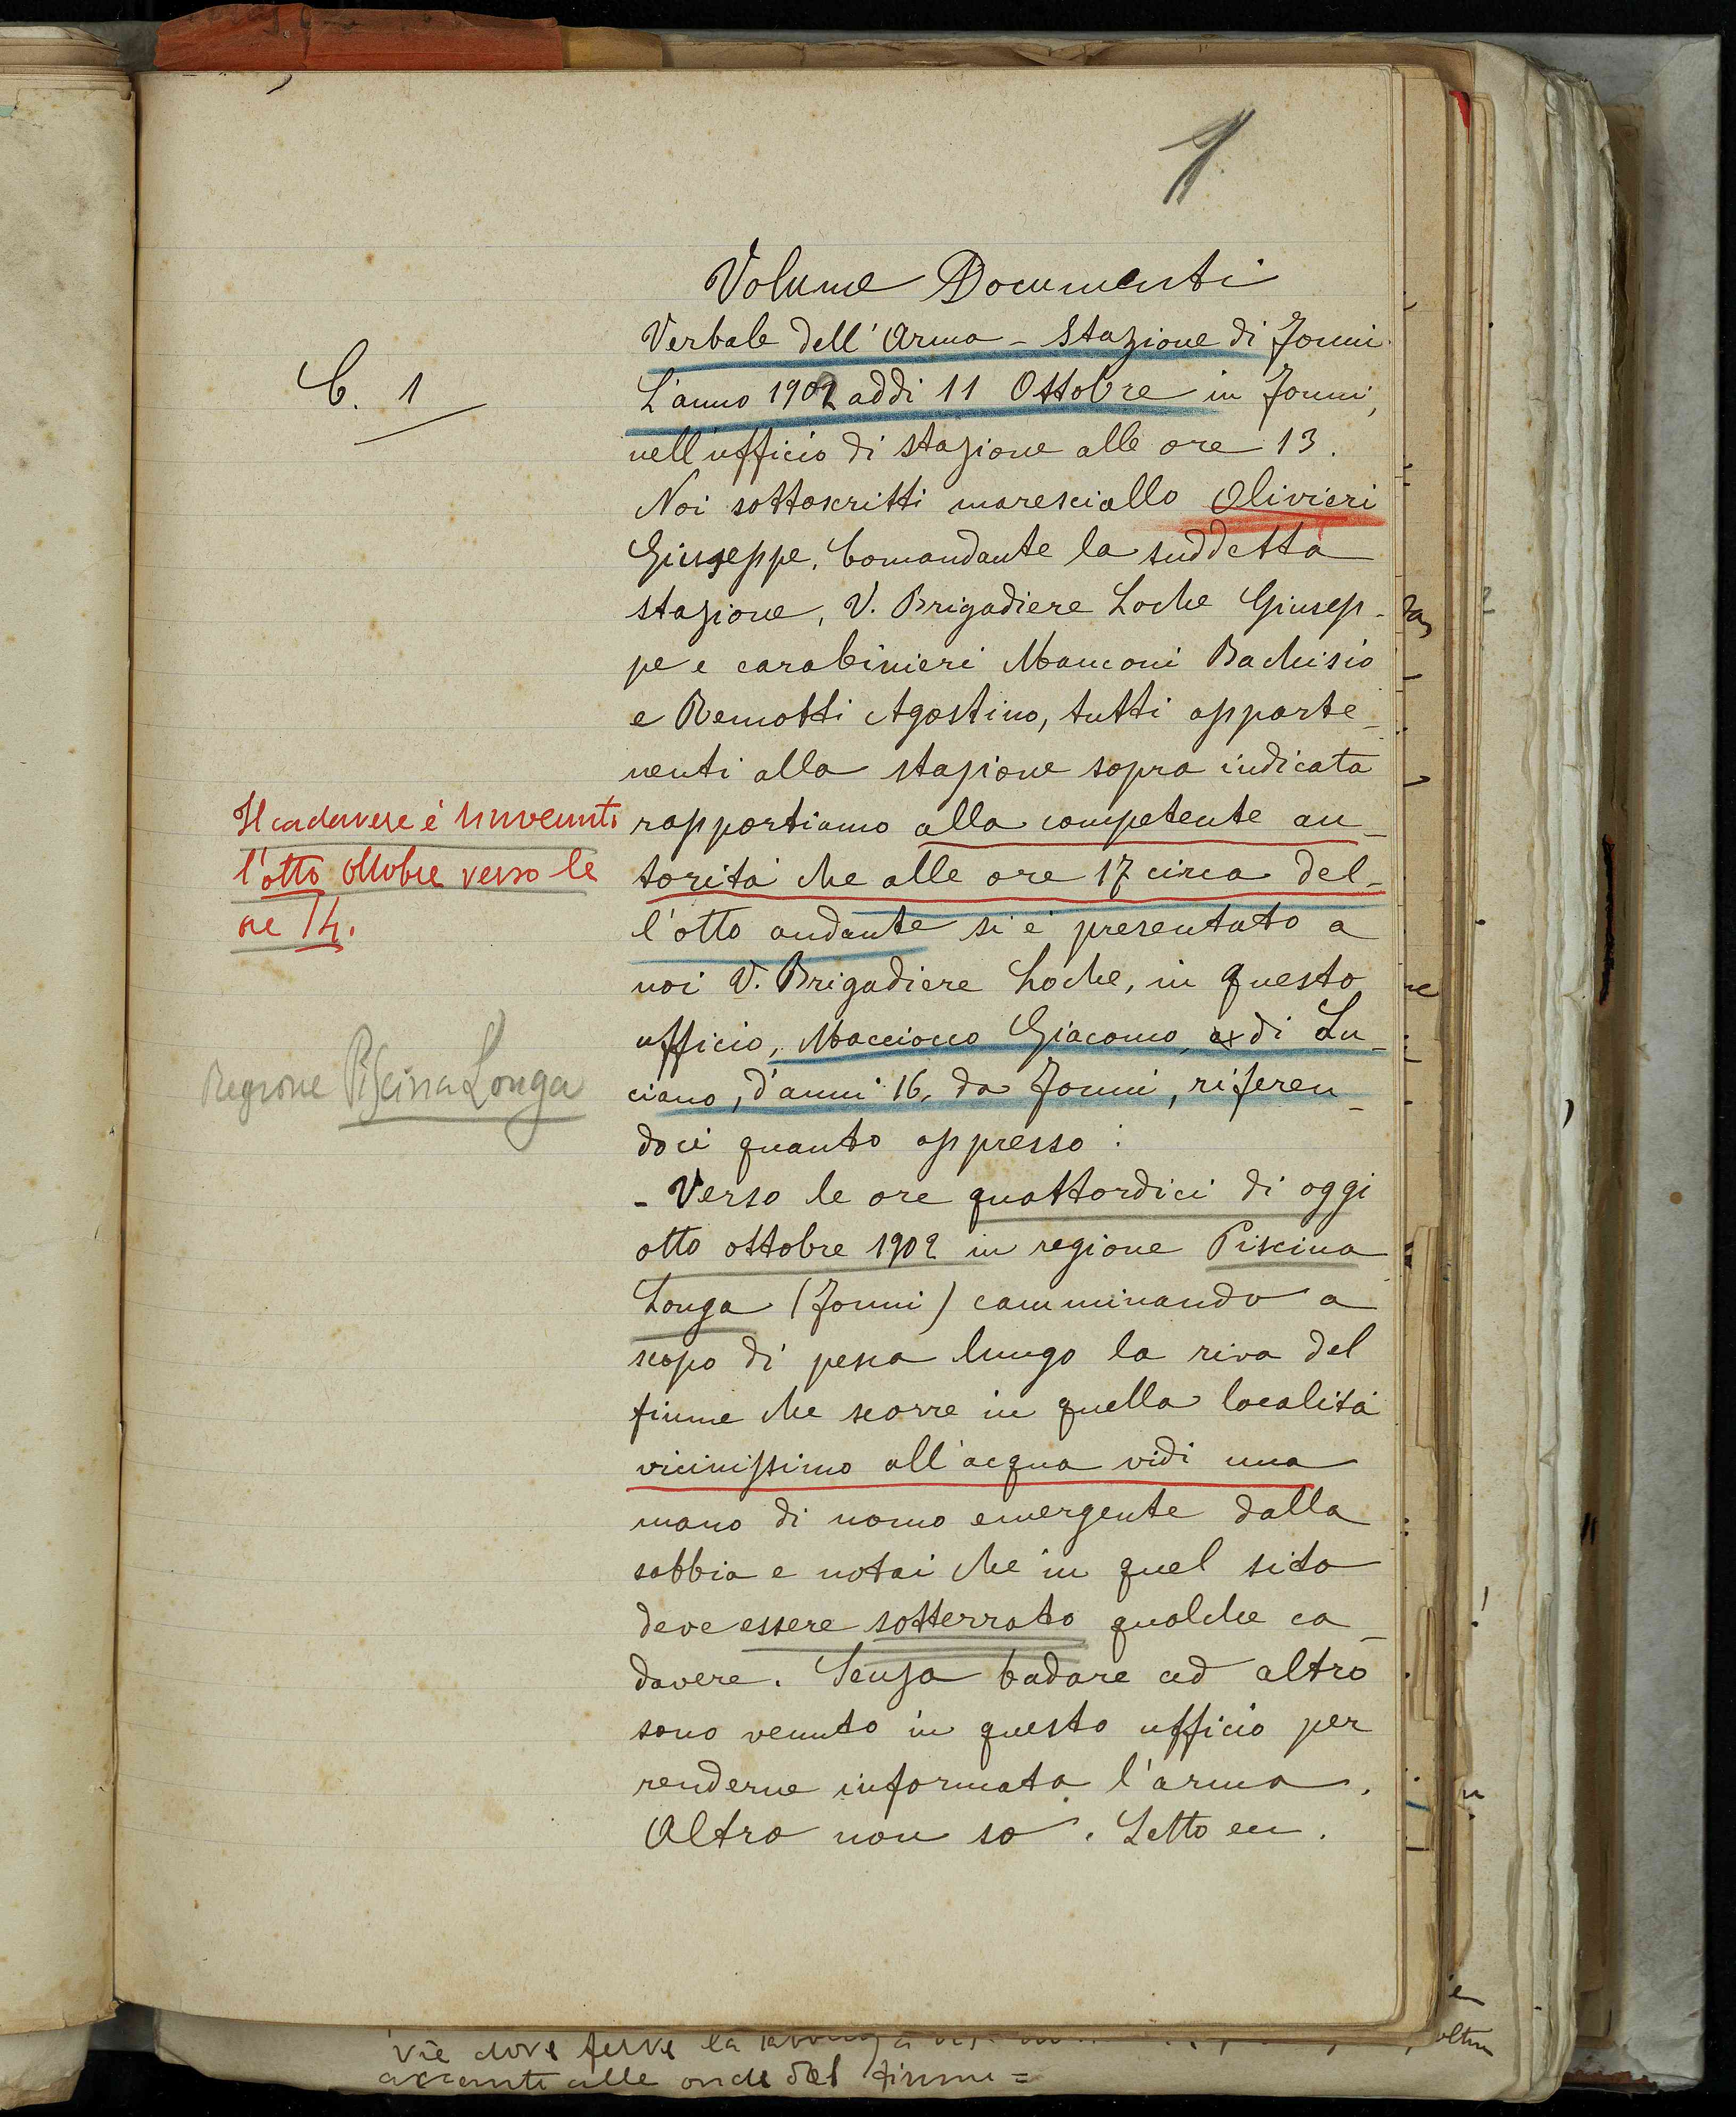 1
Volume Documenti
C. 1
Verbale dell'Arma - Stazione di Fonni.
L'anno 1902 addì 11 Ottobre in Fonni,
nell'ufficio di stazione alle ore 13.
Noi sottoscritti maresciallo Olivieri
Giuseppe, Comandante la suddetta
stazione, V. Brigadiere Loche Giusep-
pe e carabinieri Manconi Bachisio
e Remotti Agostino, tutti apparte-
nenti alla stazione sopra indicata
rapportiamo alla competente au-
torità che alle ore 17 circa del-
l'otto andante si è presentato a
noi V. Brigadiere Loche, in questo
ufficio, Macciocco Giacomo, di Lu-
ciano, d'anni 16, da Fonni, riferen-
doci quanto appresso:
- Verso le ore quattordici di oggi
otto ottobre 1902 in regione Piscina
Longa (Fonni) camminando a
scopo di pesca lungo la riva del
fiume che scorre in quella località
vicinissimo all'acqua vidi una
mano di uomo emergente dalla
sabbia e notai che in quel sito
deve essere sotterrato qualche ca-
davere. Senza badare ad altro
sono venuto in questo ufficio per
renderne informata l'arma.
Altro non so. Letto ecc.
Il cadavere è rinvenuto
l'otto ottobre verso le
ore 14.
Regione Piscina Longa
alle onde del fiume =